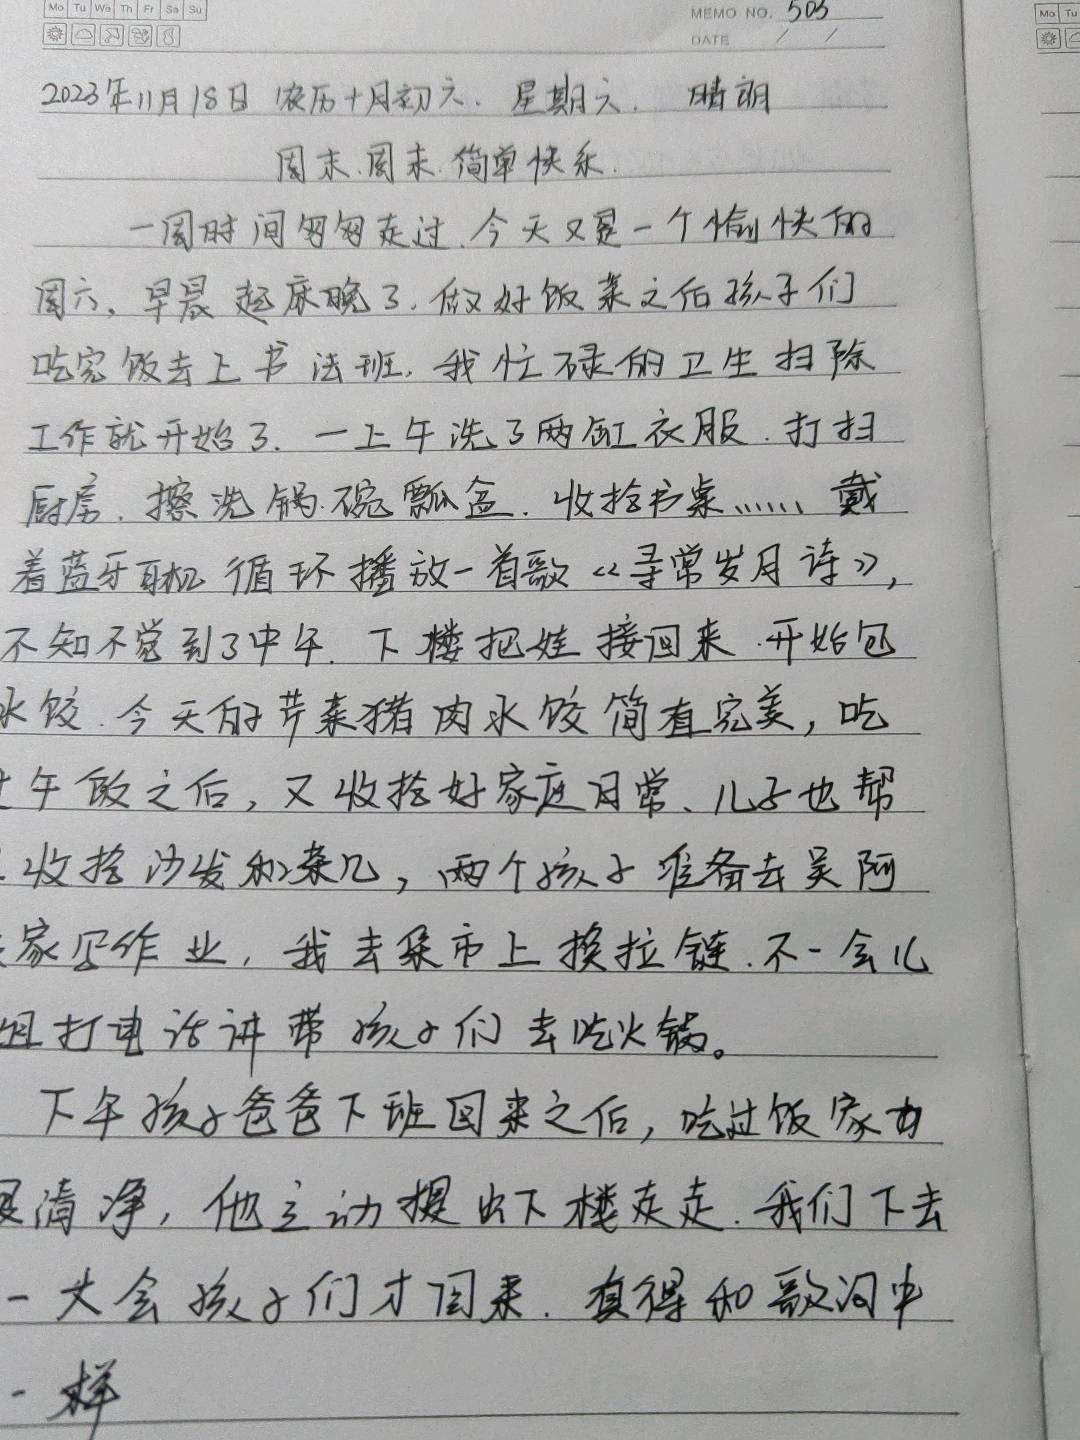 Mo Tu We Th Fr Sa Su
MEMO NO. 505
DATE / /
Mo Tu
2023年11月18日 农历十月初六. 星期六. 晴朗
周末.周末.简单快乐.
一周时间匆匆走过.今天又是一个愉快的
周六,早晨起床晚了.做好饭菜之后孩子们
吃完饭去上书法班.我忙碌的卫生扫除
工作就开始了.一上午洗了两缸衣服.打扫
厨房.擦洗锅.碗瓢盆.收拾书桌……戴
着蓝牙耳机循环播放一首歌《寻常岁月诗》,
不知不觉到了中午.下楼把娃接回来.开始包
水饺.今天的芹菜猪肉水饺简直完美,吃
午饭之后,又收拾好家庭日常、儿子也帮
收拾沙发和茶几,两个孩子准备去吴阿
家写作业,我去集市上换拉链.不一会儿
姐打电话讲带孩子们去吃火锅。
下午孩子爸爸下班回来之后,吃过饭家也
清净,他主动提出下楼走走.我们下去
一大会孩子们才回来.真得和歌词中
一样